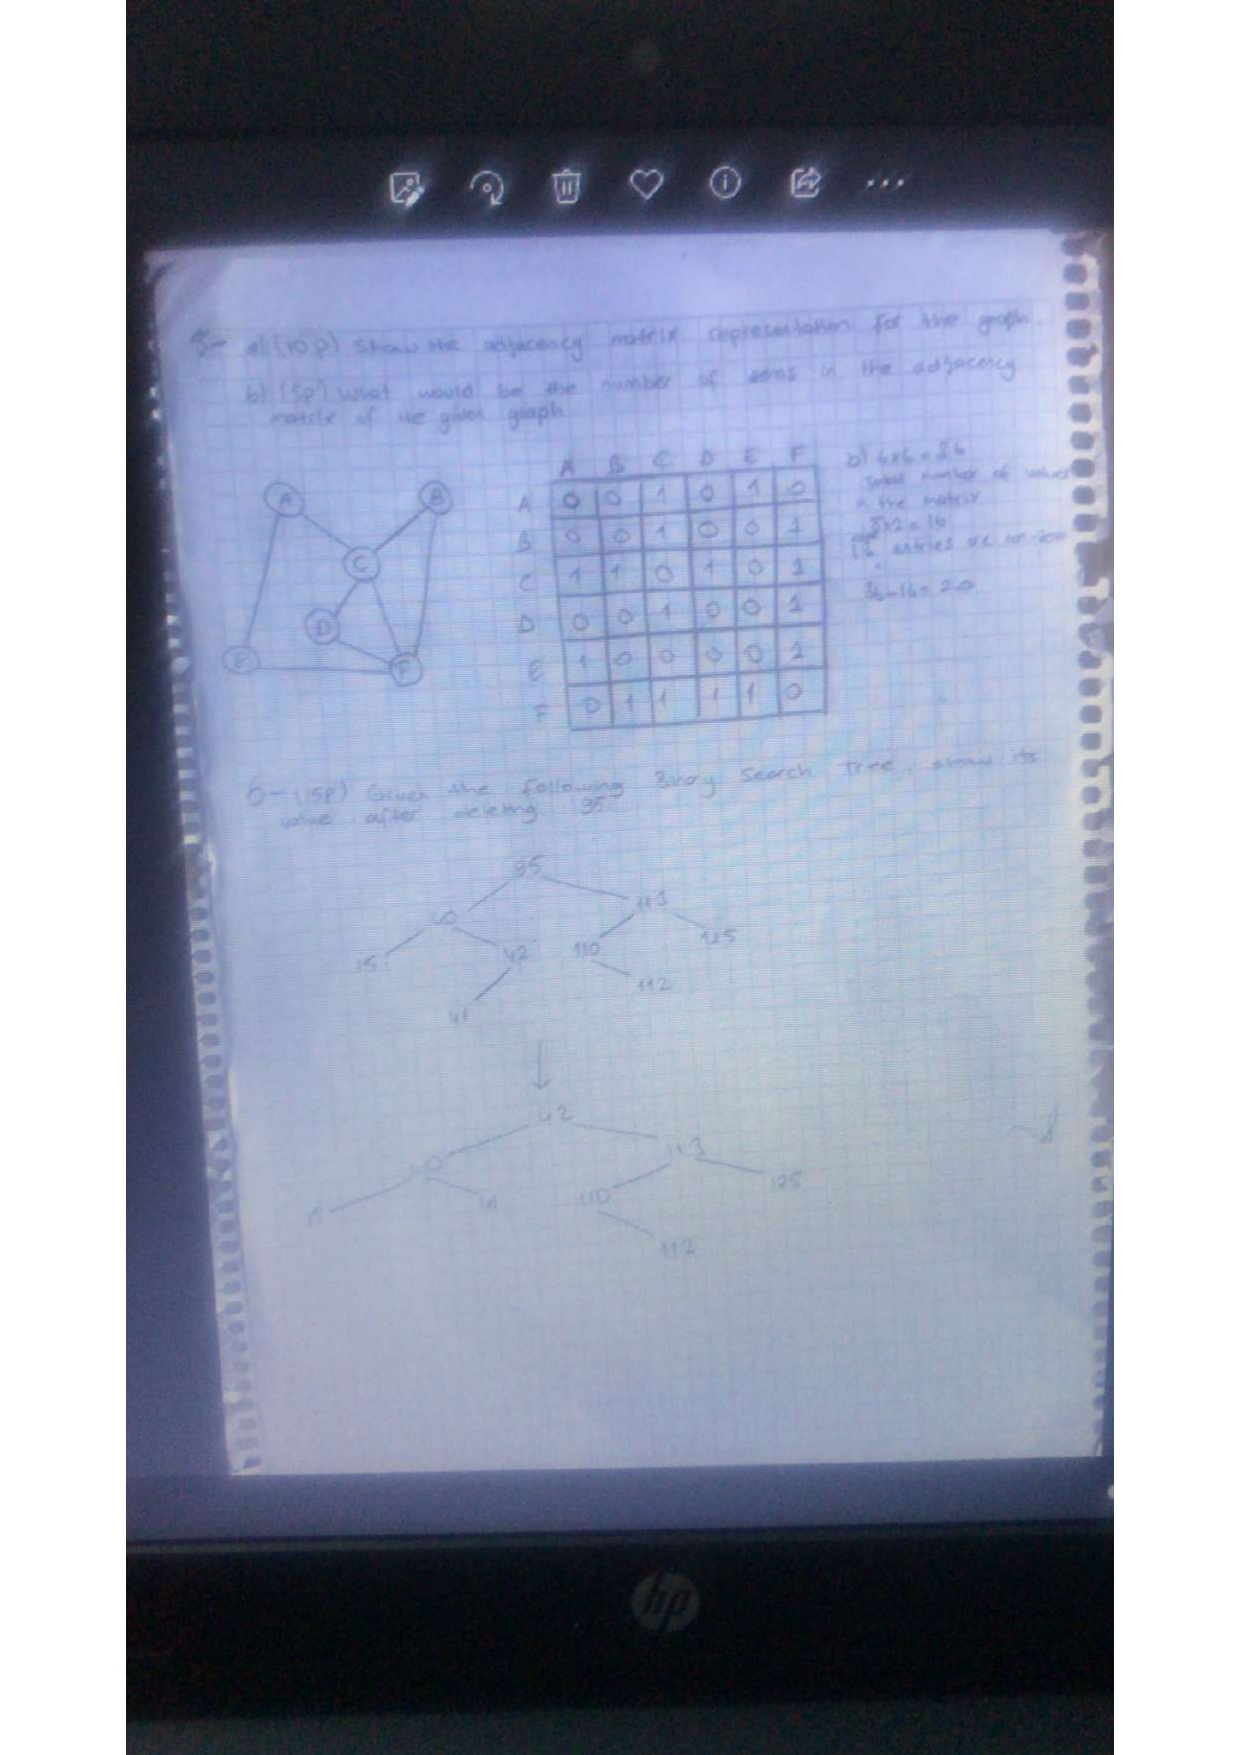 5- a) (10 p) Show the adjacency matrix representation for the graph.
b) (5p) What would be the number of zeros in the adjacency
matrix of the given graph
A B C D E F
A 0 0 1 0 1 0
B 0 0 1 0 0 1
C 1 1 0 1 0 1
D 0 0 1 0 0 1
E 1 0 0 0 0 1
F 0 1 1 1 1 0
A B
C
D
E F
b) 6x6 = 36
total number of values
in the matrix
8x2 = 16
16 entries are non-zero
36-16=20
6- (15p) Given the following Binary Search Tree, show its
value after deleting 95
95
113
15 42 110 125
41 112
42
113
15 41 110 125
112
hp